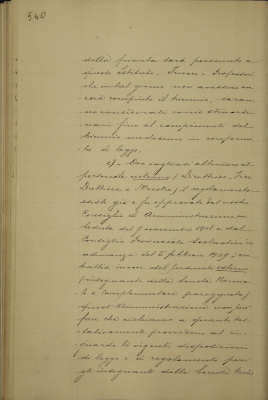 540
della pianta sarà presentato a
questo Istituto. Invece i Professori
che in tal giorno non avessero an-
cora compiuto il biennio, saran-
no considerati come straordi-
nari fino al compimento del
biennio medesimo in conformi-
tà di legge.
c) - Ove vogliasi alludere al
personale interno (Direttrice, Vice
Direttrice e Maestre) il regolamento
esiste già e fu approvato dal nostro
Consiglio di Amministrazione in
seduta del 7 novembre 1908 e dal
Consiglio Provinciale Scolastico in
adunanza del 5 febbraio 1909; se
trattasi invece del personale esterno
(insegnanti della Scuola Norma-
le e complementare pareggiata)
quest'Amministrazione non può
fare che richiamo a quanto tas-
sativamente prescrivono al ri-
guardo le vigenti disposizioni
di legge e di regolamento per
gli insegnanti delle Scuole